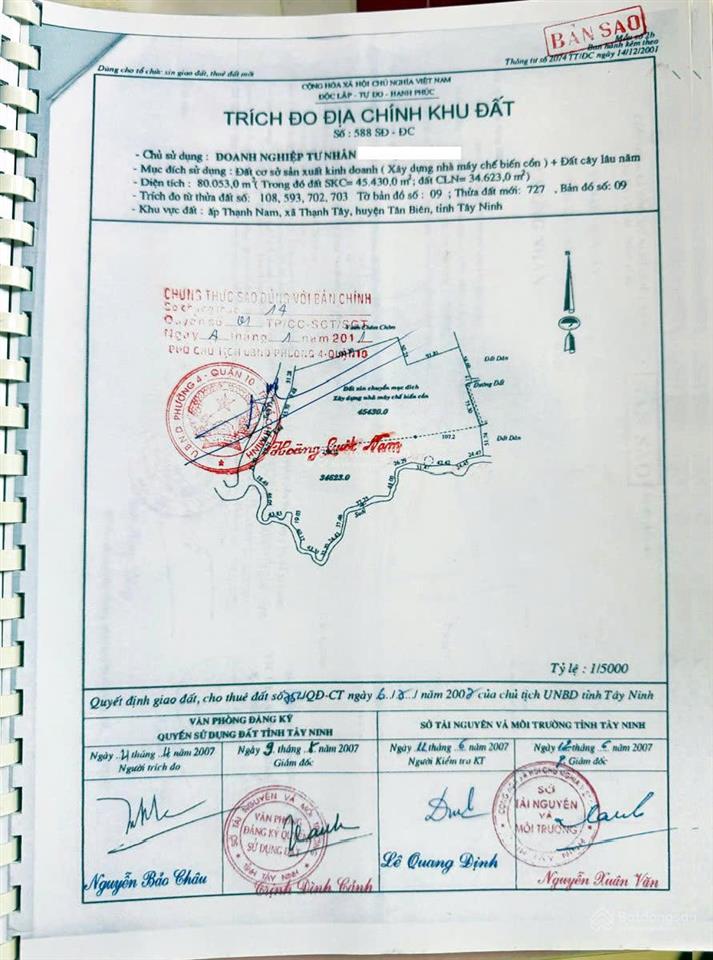 BẢN SAO
Mẫu số 2b
Dùng cho tổ chức xin giao đất, thuê đất mới
Ban hành kèm theo
Thông tư số 2074 TT/ĐC ngày 14/12/2001
CỘNG HÒA XÃ HỘI CHỦ NGHĨA VIỆT NAM
ĐỘC LẬP - TỰ DO - HẠNH PHÚC
TRÍCH ĐO ĐỊA CHÍNH KHU ĐẤT
Số : 588 SĐ - ĐC
- Chủ sử dụng : DOANH NGHIỆP TƯ NHÂN
- Mục đích sử dụng : Đất cơ sở sản xuất kinh doanh ( Xây dựng nhà máy chế biến cồn ) + Đất cây lâu năm
- Diện tích : 80.053,0 m² ( Trong đó đất SKC= 45.430,0 m²; đất CLN= 34.623,0 m²)
- Trích đo từ thửa đất số: 108, 593, 702, 703 Tờ bản đồ số : 09 ; Thửa đất mới: 727 , Bản đồ số: 09
- Khu vực đất : ấp Thạnh Nam, xã Thạnh Tây, huyện Tân Biên, tỉnh Tây Ninh
CHỨNG THỰC SAO ĐÚNG VỚI BẢN CHÍNH
Số chứng thực 14
Quyển số 01 TP/CC-SCT/SGT
Ngày 4 tháng 1 năm 2011
PHÓ CHỦ TỊCH UBND PHƯỜNG 4-QUẬN 10
U.B.N.D PHƯỜNG 4 - QUẬN 10
Vườn Chôm Chôm
Đất Dân
Đường Đất
Đất xin chuyển mục đích
Xây dựng nhà máy chế biến cồn
45430.0
107.2
Đất Dân
Hoàng Quốc Nam
34623.0
Suối
Tỷ lệ : 1/5000
Quyết định giao đất, cho thuê đất số /QĐ-CT ngày / / năm 2007 của chủ tịch UNBD tỉnh Tây Ninh
VĂN PHÒNG ĐĂNG KÝ
QUYỀN SỬ DỤNG ĐẤT TỈNH TÂY NINH
SỞ TÀI NGUYÊN VÀ MÔI TRƯỜNG TỈNH TÂY NINH
Ngày tháng 4 năm 2007
Người trích đo
Ngày 9 tháng 5 năm 2007
Giám đốc
Ngày 11 tháng 6 năm 2007
Người Kiểm tra KT
Ngày 12 tháng 6 năm 2007
Giám đốc
SỞ TÀI NGUYÊN VÀ MÔI TRƯỜNG
VĂN PHÒNG
ĐĂNG KÝ QUYỀN
SỬ DỤNG ĐẤT
TỈNH TÂY NINH
CỘNG HÒA XÃ HỘI CHỦ NGHĨA
SỞ
TÀI NGUYÊN
VÀ
MÔI TRƯỜNG
TỈNH TÂY NINH
Nguyễn Bảo Châu
Trịnh Đình Cảnh
Lê Quang Định
Nguyễn Xuân Văn
Batdongsan